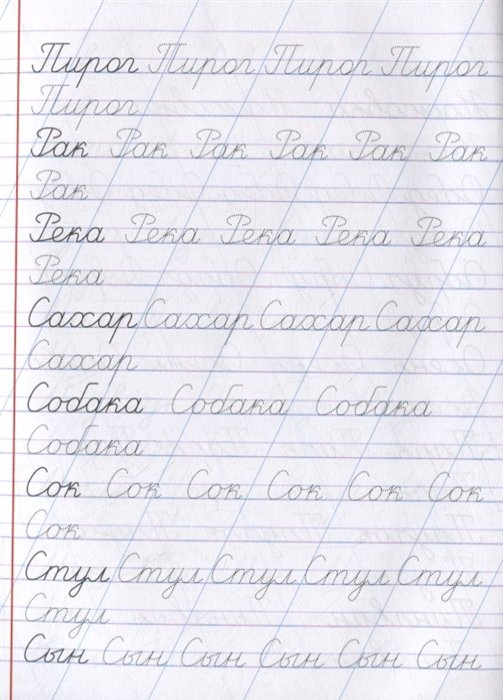 Пирог Пирог Пирог Пирог
Пирог
Рак Рак Рак Рак Рак Рак
Рак
Река Река Река Река Река
Река
Сахар Сахар Сахар Сахар
Сахар
Собака Собака Собака
Собака
Сок Сок Сок Сок Сок Сок
Сок
Стул Стул Стул Стул Стул
Стул
Сын Сын Сын Сын Сын Сын